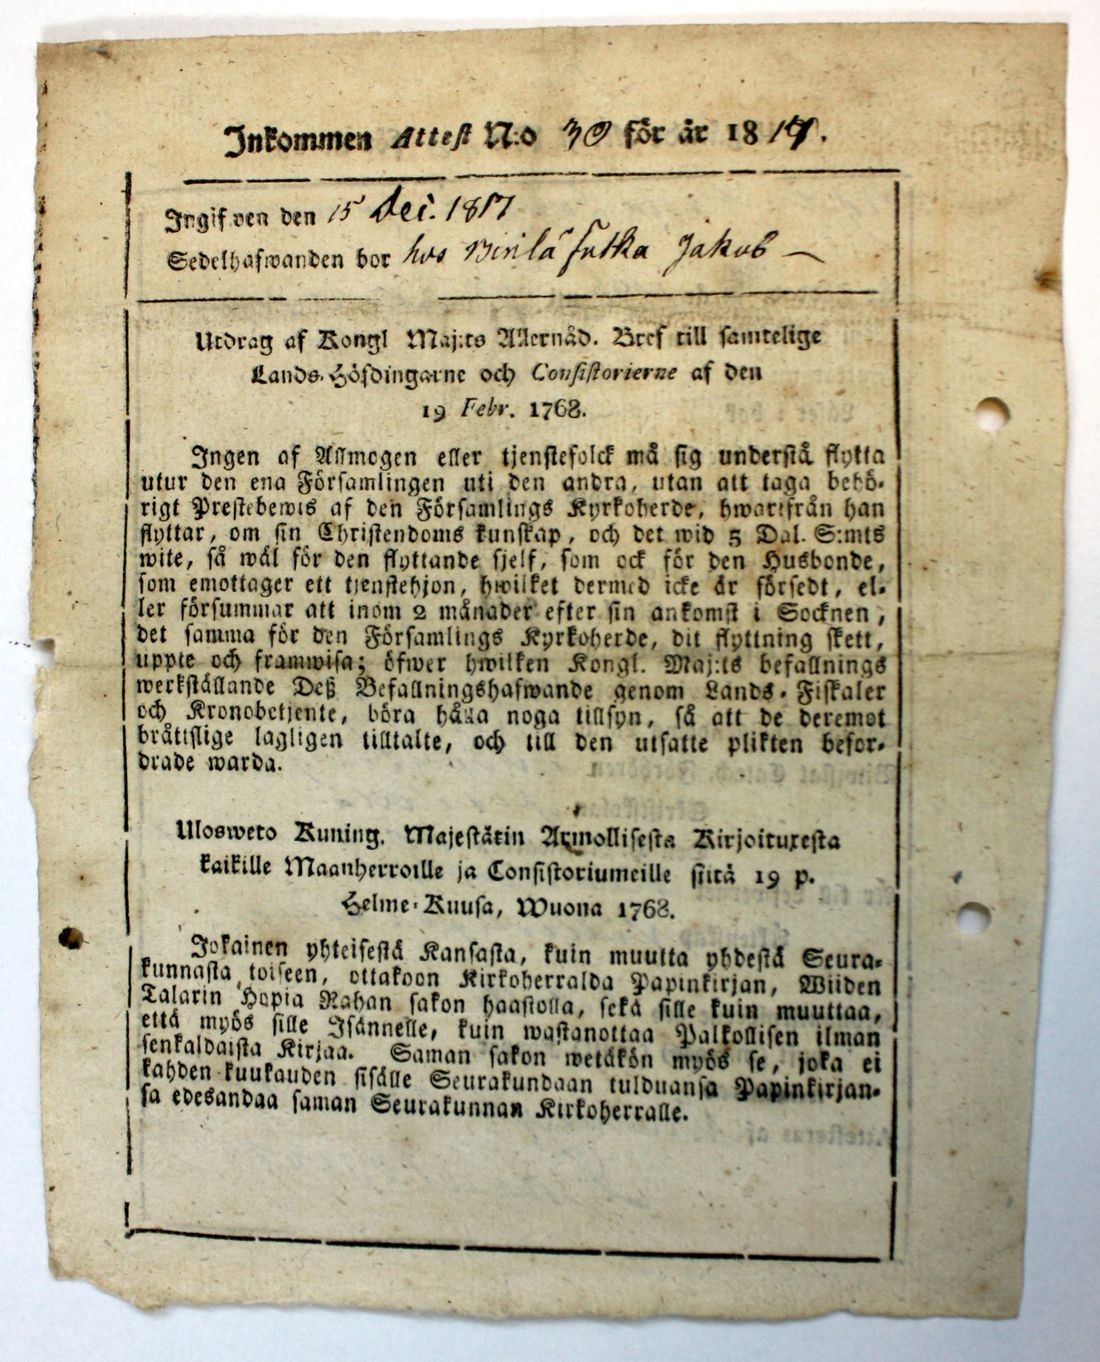 Inkommen Attest N:o 30 för år 1817.
Ingifven den 15 Dec. 1817
Sedelhafwanden bor hos Jakob
Utdrag af Kongl Maj:ts Allernåd. Bref till samtelige
Lands-Höfdingarne och Consistorierne af den
19 Febr. 1768.
Ingen af Allmogen eller tjenstefolck må sig understå flytta
utur den ena Församlingen uti den andra, utan att taga behö-
rigt Prestebewis af den Församlings Kyrkoherde, hwarifrån han
flyttar, om sin Christendoms kunskap, och det wid 5 Dal. S:mts
wite, så wäl för den flyttande sjelf, som ock för den Husbonde,
som emottager ett tjenstehjon, hwilket dermed icke är försedt, el-
ler försummar att inom 2 månader efter sin ankomst i Socknen,
det samma för den Församlings Kyrkoherde, dit flyttning skett,
uppte och framwisa; öfwer hwilken Kongl. Maj:ts befallnings
werkställande Deß Befallningshafwande genom Lands-Fiskaler
och Kronobetjente, böra hålla noga tillsyn, så att de deremot
bråttslige lagligen tilltalte, och till den utsatte plikten befor-
drade warda.
Ulosweto Kuning. Majestätin Armollisesta Kirjoituxesta
kaikille Maanherroille ja Consistoriumeille siitä 19 p.
Helme-Kuusa, Wuona 1768.
Jokainen yhteisestä Kansasta, kuin muutta yhdestä Seura-
kunnasta toiseen, ottakoon Kirkoherralda Papinkirjan, Wiiden
Talarin Hopia Rahan sakon haastolla, sekä sille kuin muuttaa,
että myös sille Isännelle, kuin wastanottaa Palkollisen ilman
senkaldaista Kirjaa. Saman sakon wetäkön myös se, joka ei
kahden kuukauden sisälle Seurakundaan tulduansa Papinkirjan-
sa edesandaa saman Seurakunnan Kirkoherralle.